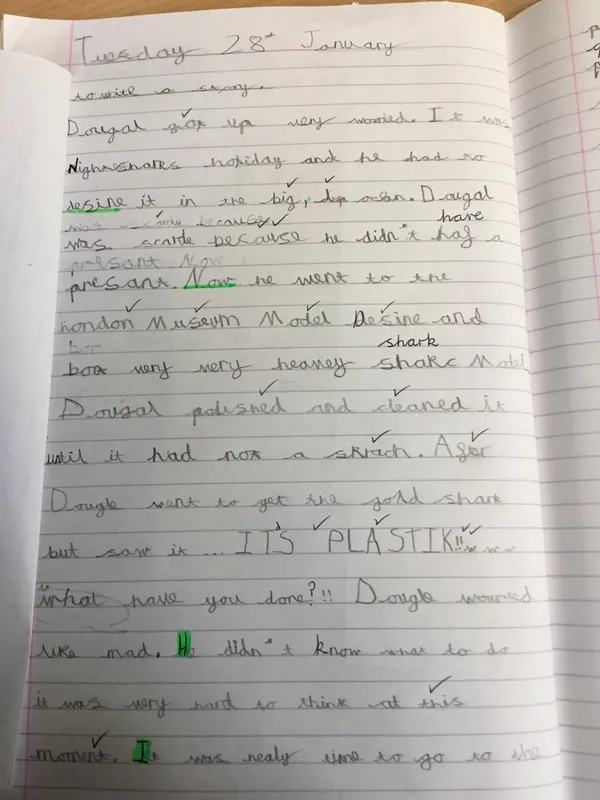 Tuesday 28th January
to write a story.
Dougal got up very worried. It was
Nightsharks holiday and he had to
desine it in the big, dep ocan. Dougal
was because
have
was scarde because he didn't haf a
presant Now
presant. Now he went to the
London Museum Model Desine and
shark
box very very heavey sharc Model
Dougal polished and cleaned it
until it had not a skrach. After
Dougle went to get the gold shark
but saw it ... IT'S PLASTIK!!
"what have you done?!! Dougle wourred
like mad. He didn't know what to do
it was very hard to think at this
moment. It was nealy time to go to the